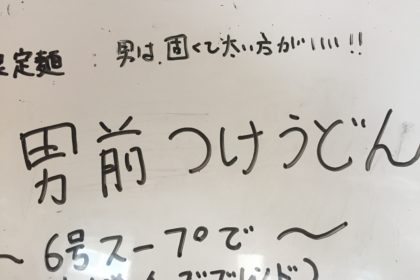 定麺：男は、固くて太い方がいい!!
男前つけうどん
〜6号スープで〜